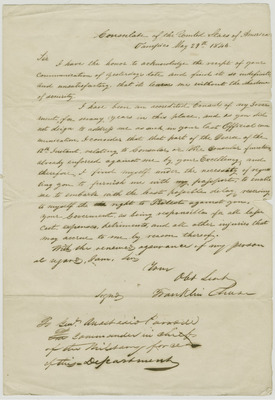 Consulate of the United States of America
Tampico May 28th 1846
Sir
I have the honor to acknowledge the receipt of your
communication of yesterdays date and find it so indefinite
and unsatisfactory that it leaves me without the shadow
of security
I have been an accredited Consul of my Govern
ment, for many years in this place, and as you did
not deign to address me as such in your last Official com
munication I consider that that part of the Decree of the
12th Instant relating to Consuls or the Consular functions
already enforced against me by your Excellency, and
therefore I find myself under the necessity of reques
ting you to furnish me with my passports to enable
me to embark with the least possible delay, reserving
to myself the right to Protest against you,
your Government as being responsible for all losses
cost, expences, detriments and all other injuries that
may accrue to me by reason thereof.
With the renewed assurance of my person
al regard, I am, Sir
Your
Obt Servt
Signed Franklin Chase
To Genl Anastacio Parrodi
The Commander in Chief
of the Military forces
of this Department